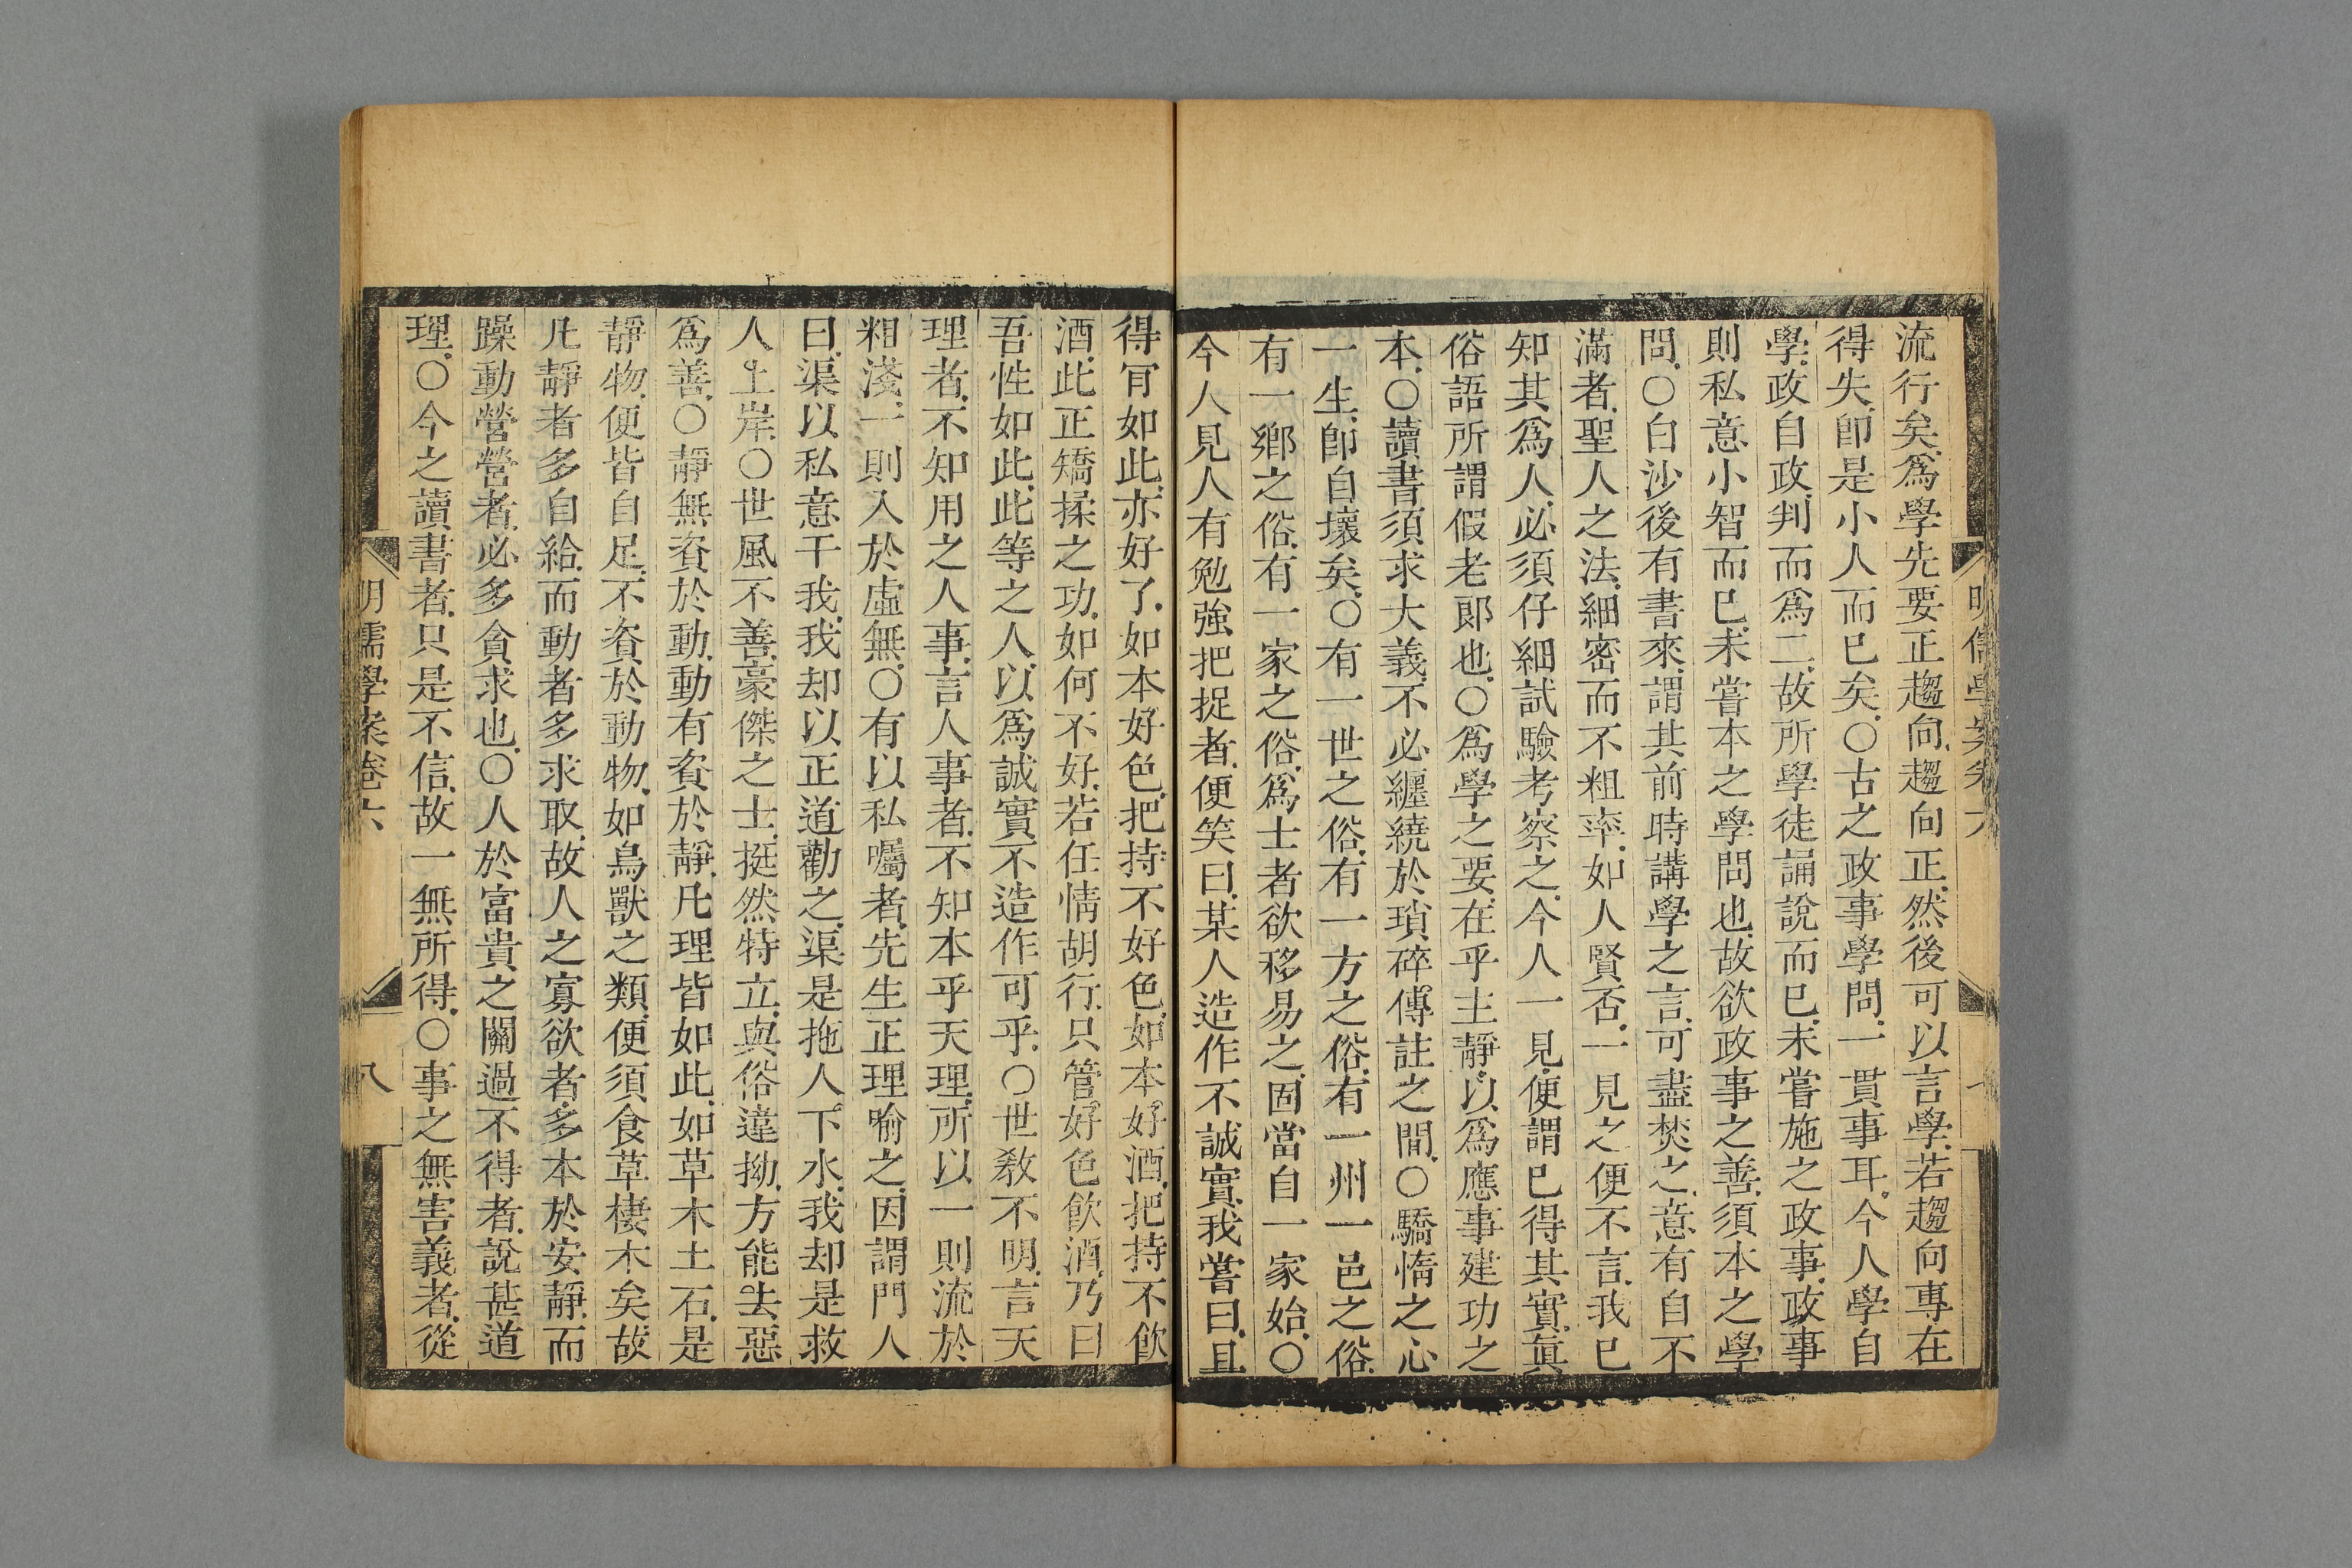 流行矣爲學先要正趨向趨向正然後可以言學若趨向專在
得失卽是小人而已矣○古之政事學問一貫事耳今人學自
學政自政判而爲二故所學徒誦說而已未嘗施之政事政事
則私意小智而已未嘗本之學問也故欲政事之善須本之學
問○白沙後有書來謂其前時講學之言可盡焚之意有自不
滿者聖人之法細密而不粗率如人賢否一見之便不言我已
知其爲人必須仔細試驗考察之今人一見便謂已得其實眞
俗語所謂假老郎也○爲學之要在乎主靜以爲應事建功之
本○讀書須求大義不必纏繞於瑣碎傳註之間○驕惰之心
一生卽自壞矣○有一世之俗有一方之俗有一州一邑之俗
有一鄉之俗有一家之俗爲士者欲移易之固當自一家始○
今人見人有勉強把捉者便笑曰某人造作不誠實我嘗曰且
得肎如此亦好了如本好色把持不好色如本好酒把持不飮
酒此正矯揉之功如何不好若任情胡行只管好色飮酒乃曰
吾性如此此等之人以爲誠實不造作可乎○世敎不明言天
理者不知用之人事言人事者不知本乎天理所以一則流於
粗淺一則入於虛無○有以私囑者先生正理喻之因謂門人
曰渠以私意干我我却以正道勸之渠是拖人下水我却是救
人上岸○世風不善豪傑之士挺然特立與俗違拗方能去惡
爲善○靜無資於動動有資於靜凡理皆如此如草木土石是
靜物便皆自足不資於動物如鳥獸之類便須食草棲木矣故
凡靜者多自給而動者多求取故人之寡欲者多本於安靜而
躁動營營者必多貪求也○人於富貴之關過不得者說甚道
理○今之讀書者只是不信故一無所得○事之無害義者從
明儒學案卷六
八